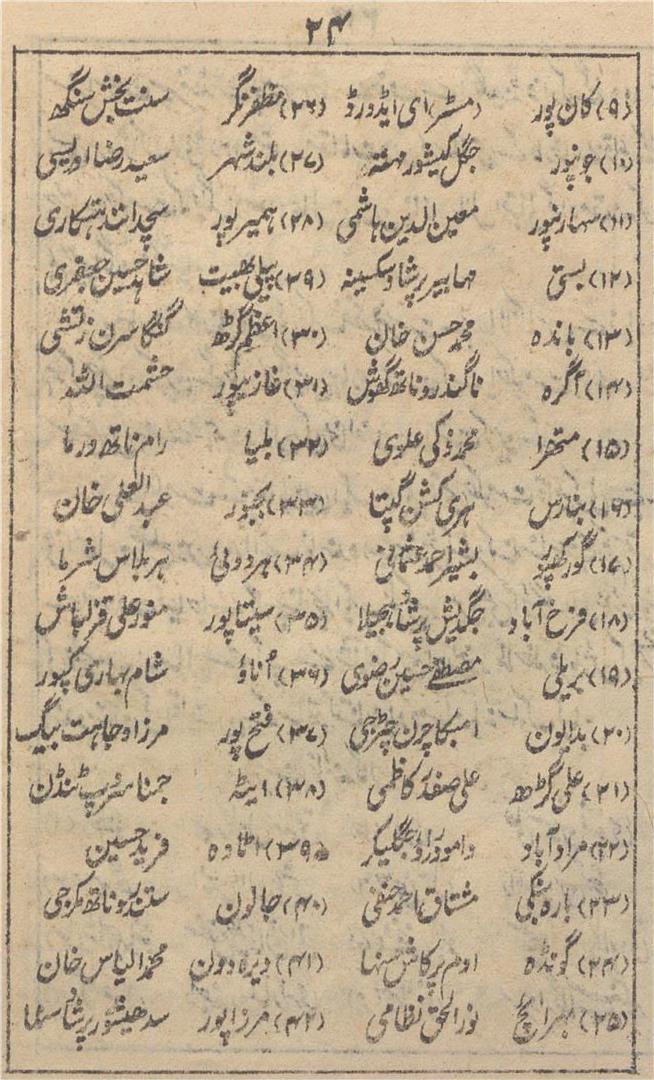 ۲۴
(۹) کان پور مسٹر ای ایڈورڈ (۲۶) مظفر نگر سنت بخش سنگھ
(۱۰) جونپور جگل کیشور مہتہ (۲۷) بلند شہر سعید رضا اویسی
(۱۱) سہارنپور معین الدین ہاشمی (۲۸) ہمیر پور سچدانند ہتکاری
(۱۲) بستی مہابیر پرشاد سکسینہ (۲۹) پیلی بھیت شاہد حسین جعفری
(۱۳) باندہ محمد حسن خان (۳۰) اعظم گڑھ گنگا سرن
(۱۴) آگرہ ناگندر وناتھ گھوش (۳۱) غازیپور حشمت اللہ
(۱۵) متھرا محمد ذکی علوی (۳۲) بلیا رام ناتھ ورما
(۱۶) بنارس ہری کشن گپتا (۳۳) بجنور عبد العلی خان
(۱۷) گورکھپور بشیر احمد عثمانی (۳۴) ہردوئی ہر بلاس شرما
(۱۸) فرخ آباد جگدیش پرشاد (۳۵) سیتاپور منور علی قزلباش
(۱۹) بریلی مصطفےٰ حسین رضوی (۳۶) اُناؤ شام بہاری کپور
(۲۰) بدایون امبکا چرن چٹرجی (۳۷) فتح پور مرزا وجاہت بیگ
(۲۱) علی گڑھ علی صفدر کاظمی (۳۸) ایٹہ جمنا سروپ ٹنڈن
(۲۲) مراد آباد دامودر راؤ (۳۹) اٹاوہ فرید حسین
(۲۳) بارہ بنکی مشتاق احمد حنفی (۴۰) جالون ستندر وناتھ مکرجی
(۲۴) گونڈہ اوم پرکاش سنہا (۴۱) دیرہ دون محمد الیاس خان
(۲۵) بہرائچ نور الحق نظامی (۴۲) مرزا پور سدھیشور پرشاد سنہا